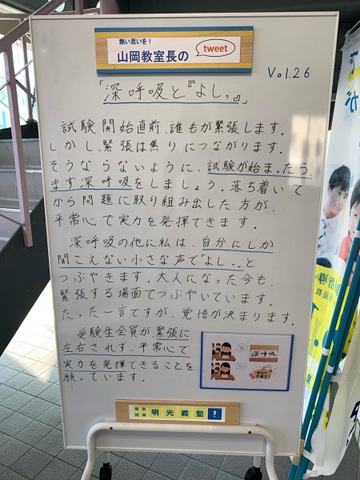 熱い思いを！
山岡教室長の tweet
Vol.26
「深呼吸と『よしっ』」
試験開始直前、誰もが緊張します。
しかし、緊張は焦りにつながります。
そうならないように、試験が始まったら
まず深呼吸をしましょう。落ち着いて
から問題に取り組み出した方が、
平常心で実力を発揮できます。
深呼吸の他に私は、自分にしか
聞こえない小さな声で『よしっ』と
つぶやきます。大人になった今も、
緊張する場面でつぶやいています。
たった一言ですが、覚悟が決まります。
受験生全員が緊張に
左右されず、平常心で
実力を発揮できることを
願っています。
深呼吸
個別指導
明光義塾！